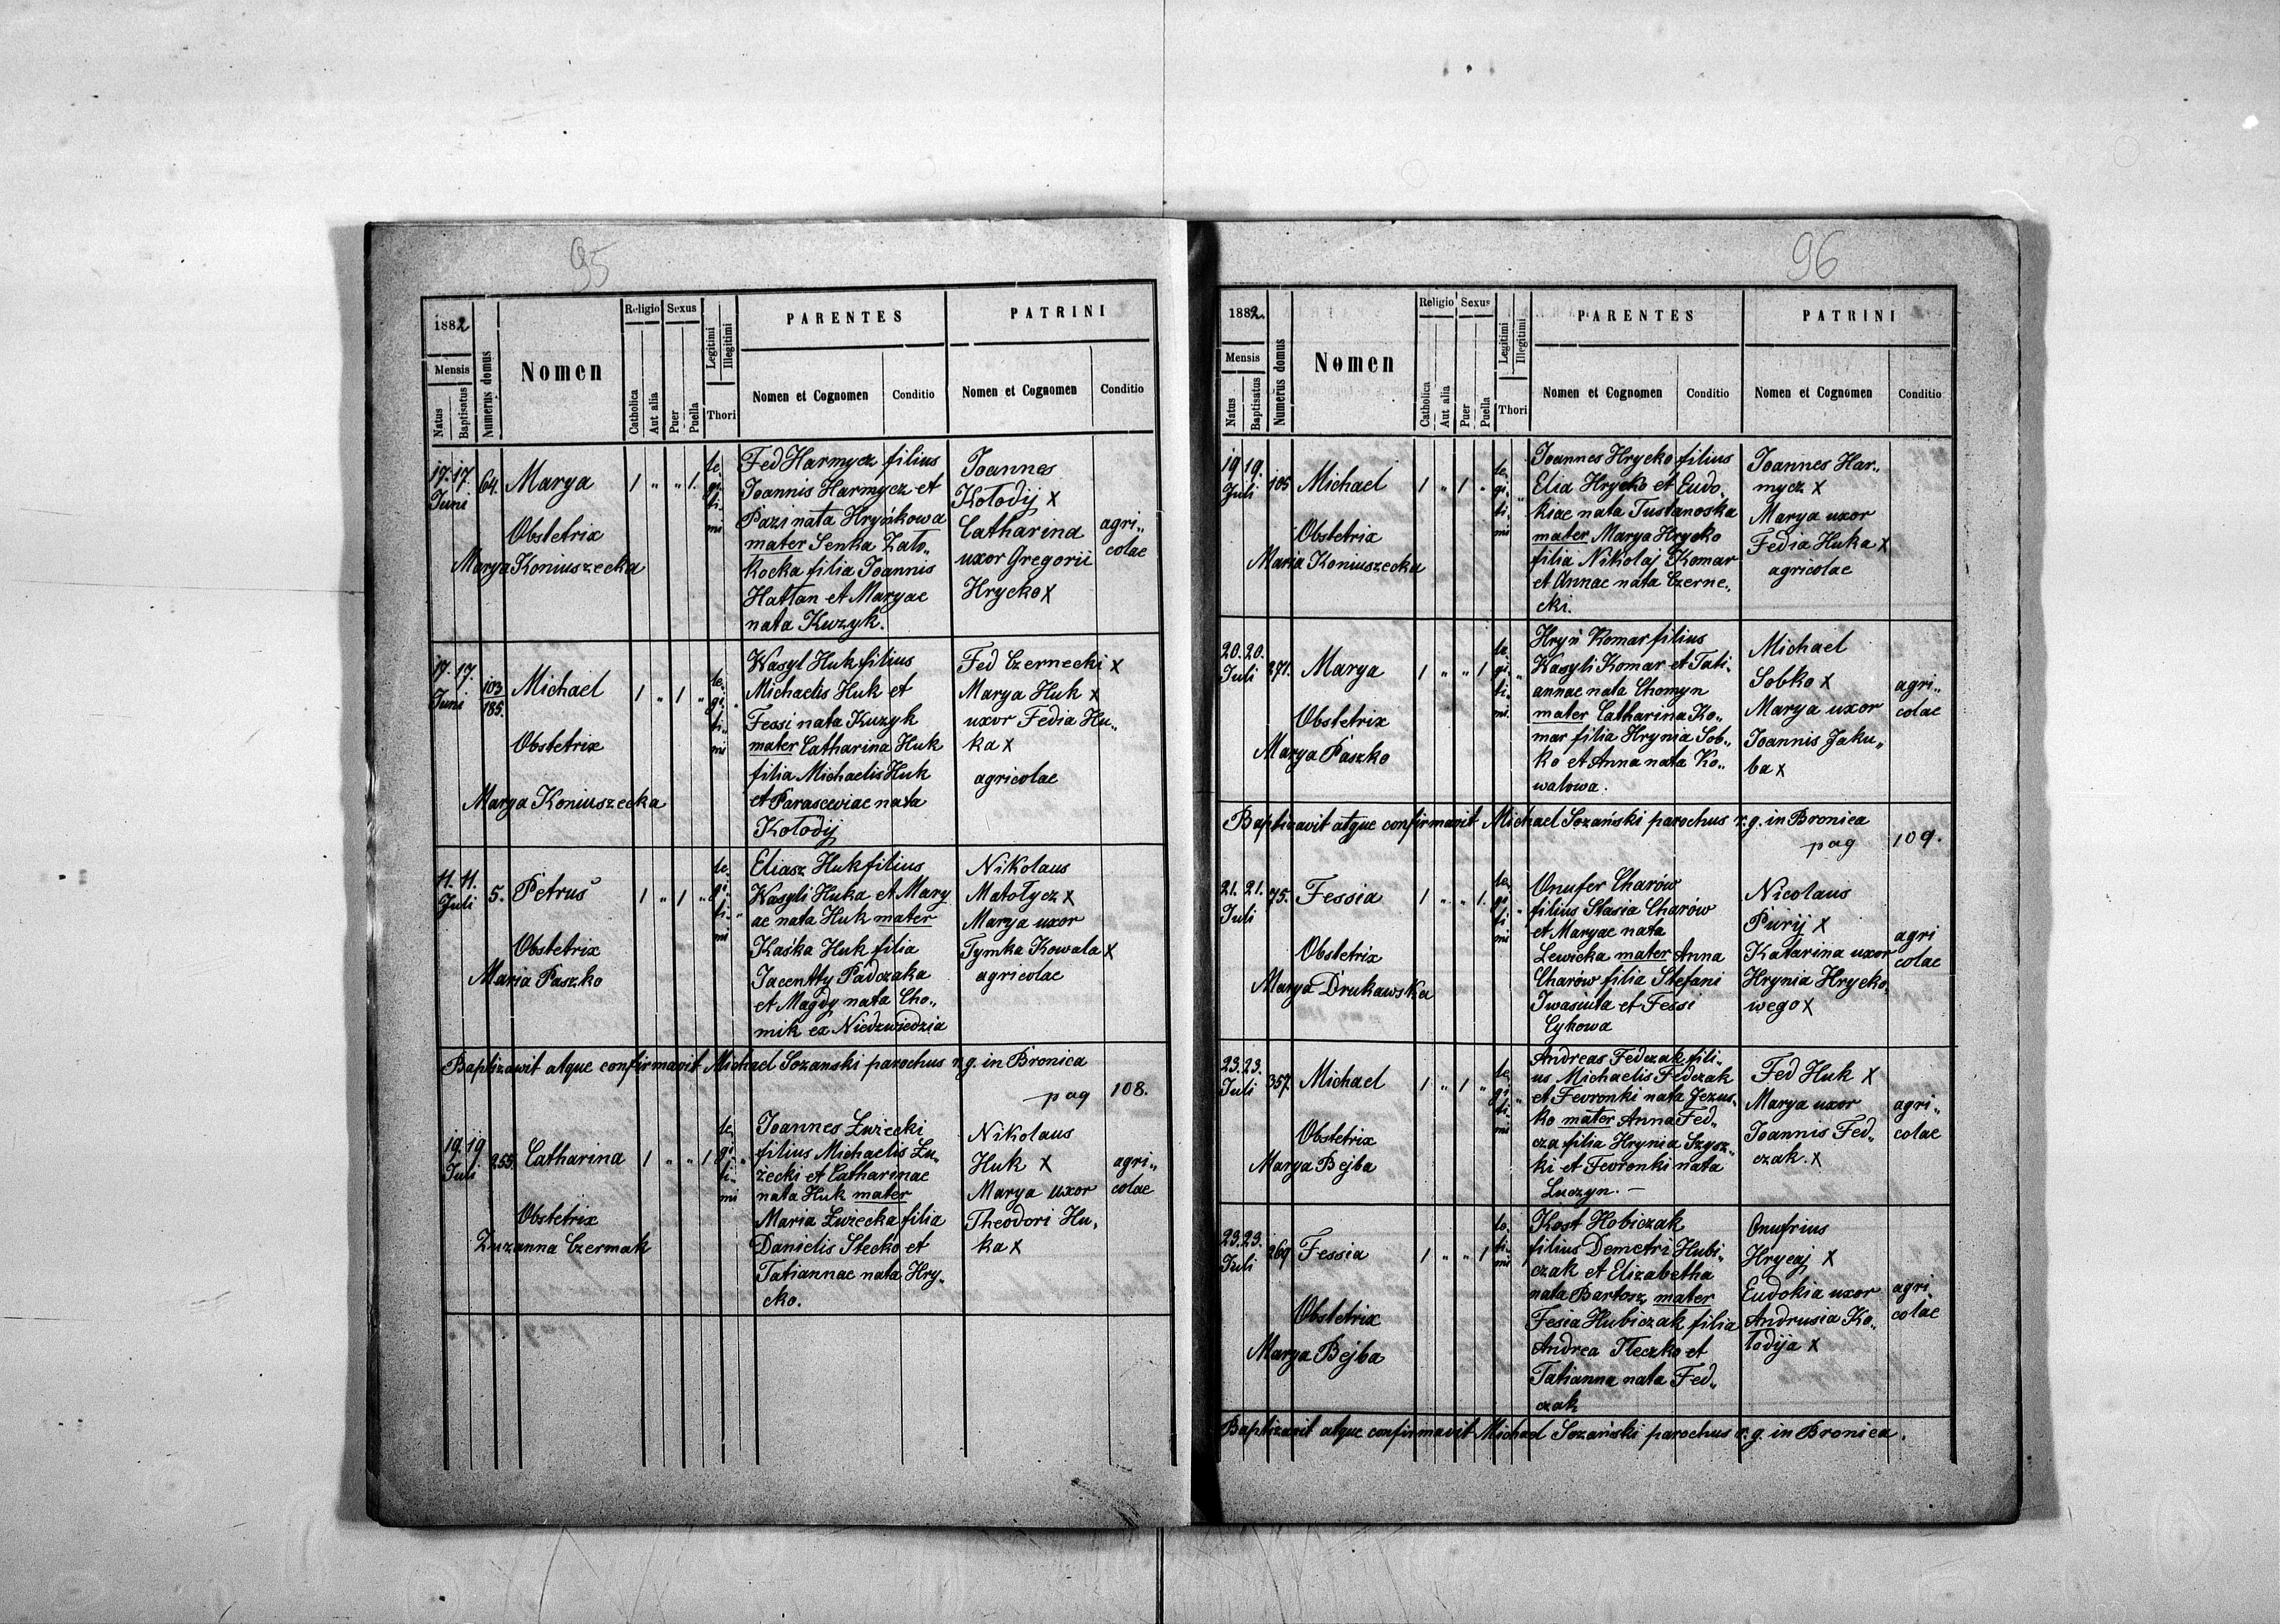 95
1882
Mensis
Natus
Baptisatus
Numerus domus
Nomen
Religio
Catholica
Aut alia
Sexus
Puer
Puella
Legitimi
Illegitimi
Thori
PARENTES
Nomen et Cognomen
Conditio
PATRINI
Nomen et Cognomen
Conditio
17. 17.
Juni
64.
Marya
Obstetrix
Marya Koniuszecka
1 " " 1.
le,
gi,
ti,
mi
Fed Harmycz filius
Joannis Harmycz et
Pazi nata Hryńkowa
mater Senka Zato„
kocka filia Joannis
Hattan et Maryae
nata Kuzyk.
Joannes
Kołodij X
Catharina
uxor Gregorii
Hrycko X
agri„
colae
17. 17.
Juni
103
185.
Michael
Obstetrix
Marya Koniuszecka
1 " 1 "
le,
gi,
ti„
mi
Wasyl Huk filius
Michaelis Huk et
Fessi nata Kuzyk
mater Catharina Huk
filia Michaelis Huk
et Parasceviae nata
Kołodij
Fed Czernecki X
Marya Huk X
uxor Fedia Hu„
ka X
agricolae
11. 11.
Juli
5.
Petrus
Obstetrix
Maria Paszko
1 " 1 "
le,
gi,
ti,
mi
Eliasz Huk filius
Wasyli Huka et Mary
ae nata Huk mater
Kaśka Huk filia
Jacentty Padczaka
et Magdy nata Cho„
mik ex Niedzwiedzia
Nikolaus
Matołycz X
Marya uxor
Tymka Kowala X
agricolae
Baptizavit atque confirmavit Michael Sozanski parochus r. g. in Bronica
pag 108.
19. 19
Juli
255.
Catharina
Obstetrix
Zuzanna Czermak
1 " " 1
le,
gi,
ti„
mi
Joannes Łużecki
filius Michaelis Łu„
żecki et Catharinae
nata Huk mater
Maria Łużecka filia
Danielis Stecko et
Tatiannae nata Hry„
cko.
Nikolaus
Huk X
Marya uxor
Theodori Hu,
ka X
agri„
colae
96
1882.
Mensis
Natus
Baptisatus
Numerus domus
Nomen
Religio
Catholica
Aut alia
Sexus
Puer
Puella
Legitimi
Illegitimi
Thori
PARENTES
Nomen et Cognomen
Conditio
PATRINI
Nomen et Cognomen
Conditio
19 19.
Juli
105
Michael
Obstetrix
Maria Koniuszecka
1 " 1 "
le,
gi,
ti,
mi
Joannes Hrycko filius
Elia Hrycko et Eudo„
kiae nata Tustanoska
mater Marya Hrycko
filia Nikolaj Komar
et Annae nata Czerne„
cki.
Joannes Har„
mycz X
Marya uxor
Fedia Huka X
agricolae
20. 20.
Juli
271.
Marya
Obstetrix
Marya Paszko
1 " " 1
le,
gi,
ti,
mi.
Hryń Komar filius
Wasyli Komar et Tati„
annae nata Chomyn
mater Catharina Ko„
mar filia Hrynia Sob„
ko et Anna nata Ko„
walowa.
Michael
Sobko X
Marya uxor
Joannis Jaku„
ba X
agri„
colae
Baptizavit atque confirmavit Michael Sozański parochus r. g. in Bronica
pag 109.
21. 21.
Juli
75.
Fessia
Obstetrix
Marya Drukawska
1 " " 1.
le,
gi
ti,
mi
Onufer Charów
filius Stasia Charów
et Maryae nata
Lewicka mater Anna
Charów filia Stefani
Iwasiuta et Fessi
Cykowa
Nicolaus
Puryj X
Katarina uxor
Hrynia Hrycko„
wego X
agri
colae
23. 23.
Juli
357.
Michael
Obstetrix
Marya Bejba
1 " 1 "
le,
gi,
ti,
mi
Andreas Fedczak fili„
us Michaelis Fedczak
et Fevronki nata Jezus„
ko mater Anna Fed„
cza filia Hrynia Szysz„
ki et Fevronki nata
Luczyn. –
Fed Huk X
Marya uxor
Joannis Fed„
czak. X
agri„
colae
23. 23.
Juli
269
Fessia
Obstetrix
Marya Bejba
1 " " 1
le,
ti,
mi
Kost Hobiczak
filius Demetri Hubi„
czak et Elizabetha
nata Bartosz, mater
Fesia Hubiczak filia
Andrea Tleczko et
Tatianna nata Fed„
czak
Onufrius
Hrycaj X
Eudokia uxor
Andrusia Ko„
łodija X
agri„
colae
Baptizavit atque confirmavit Michael Sozański parochus r. g. in Bronica.